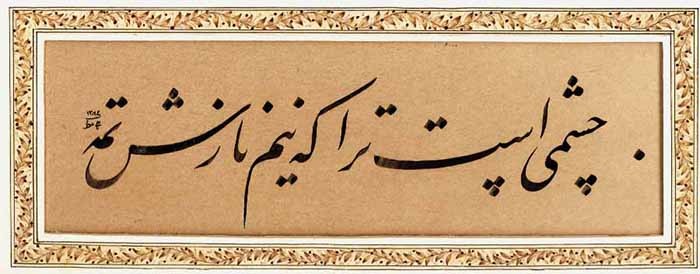 چشمی است ترا که نیم نازش